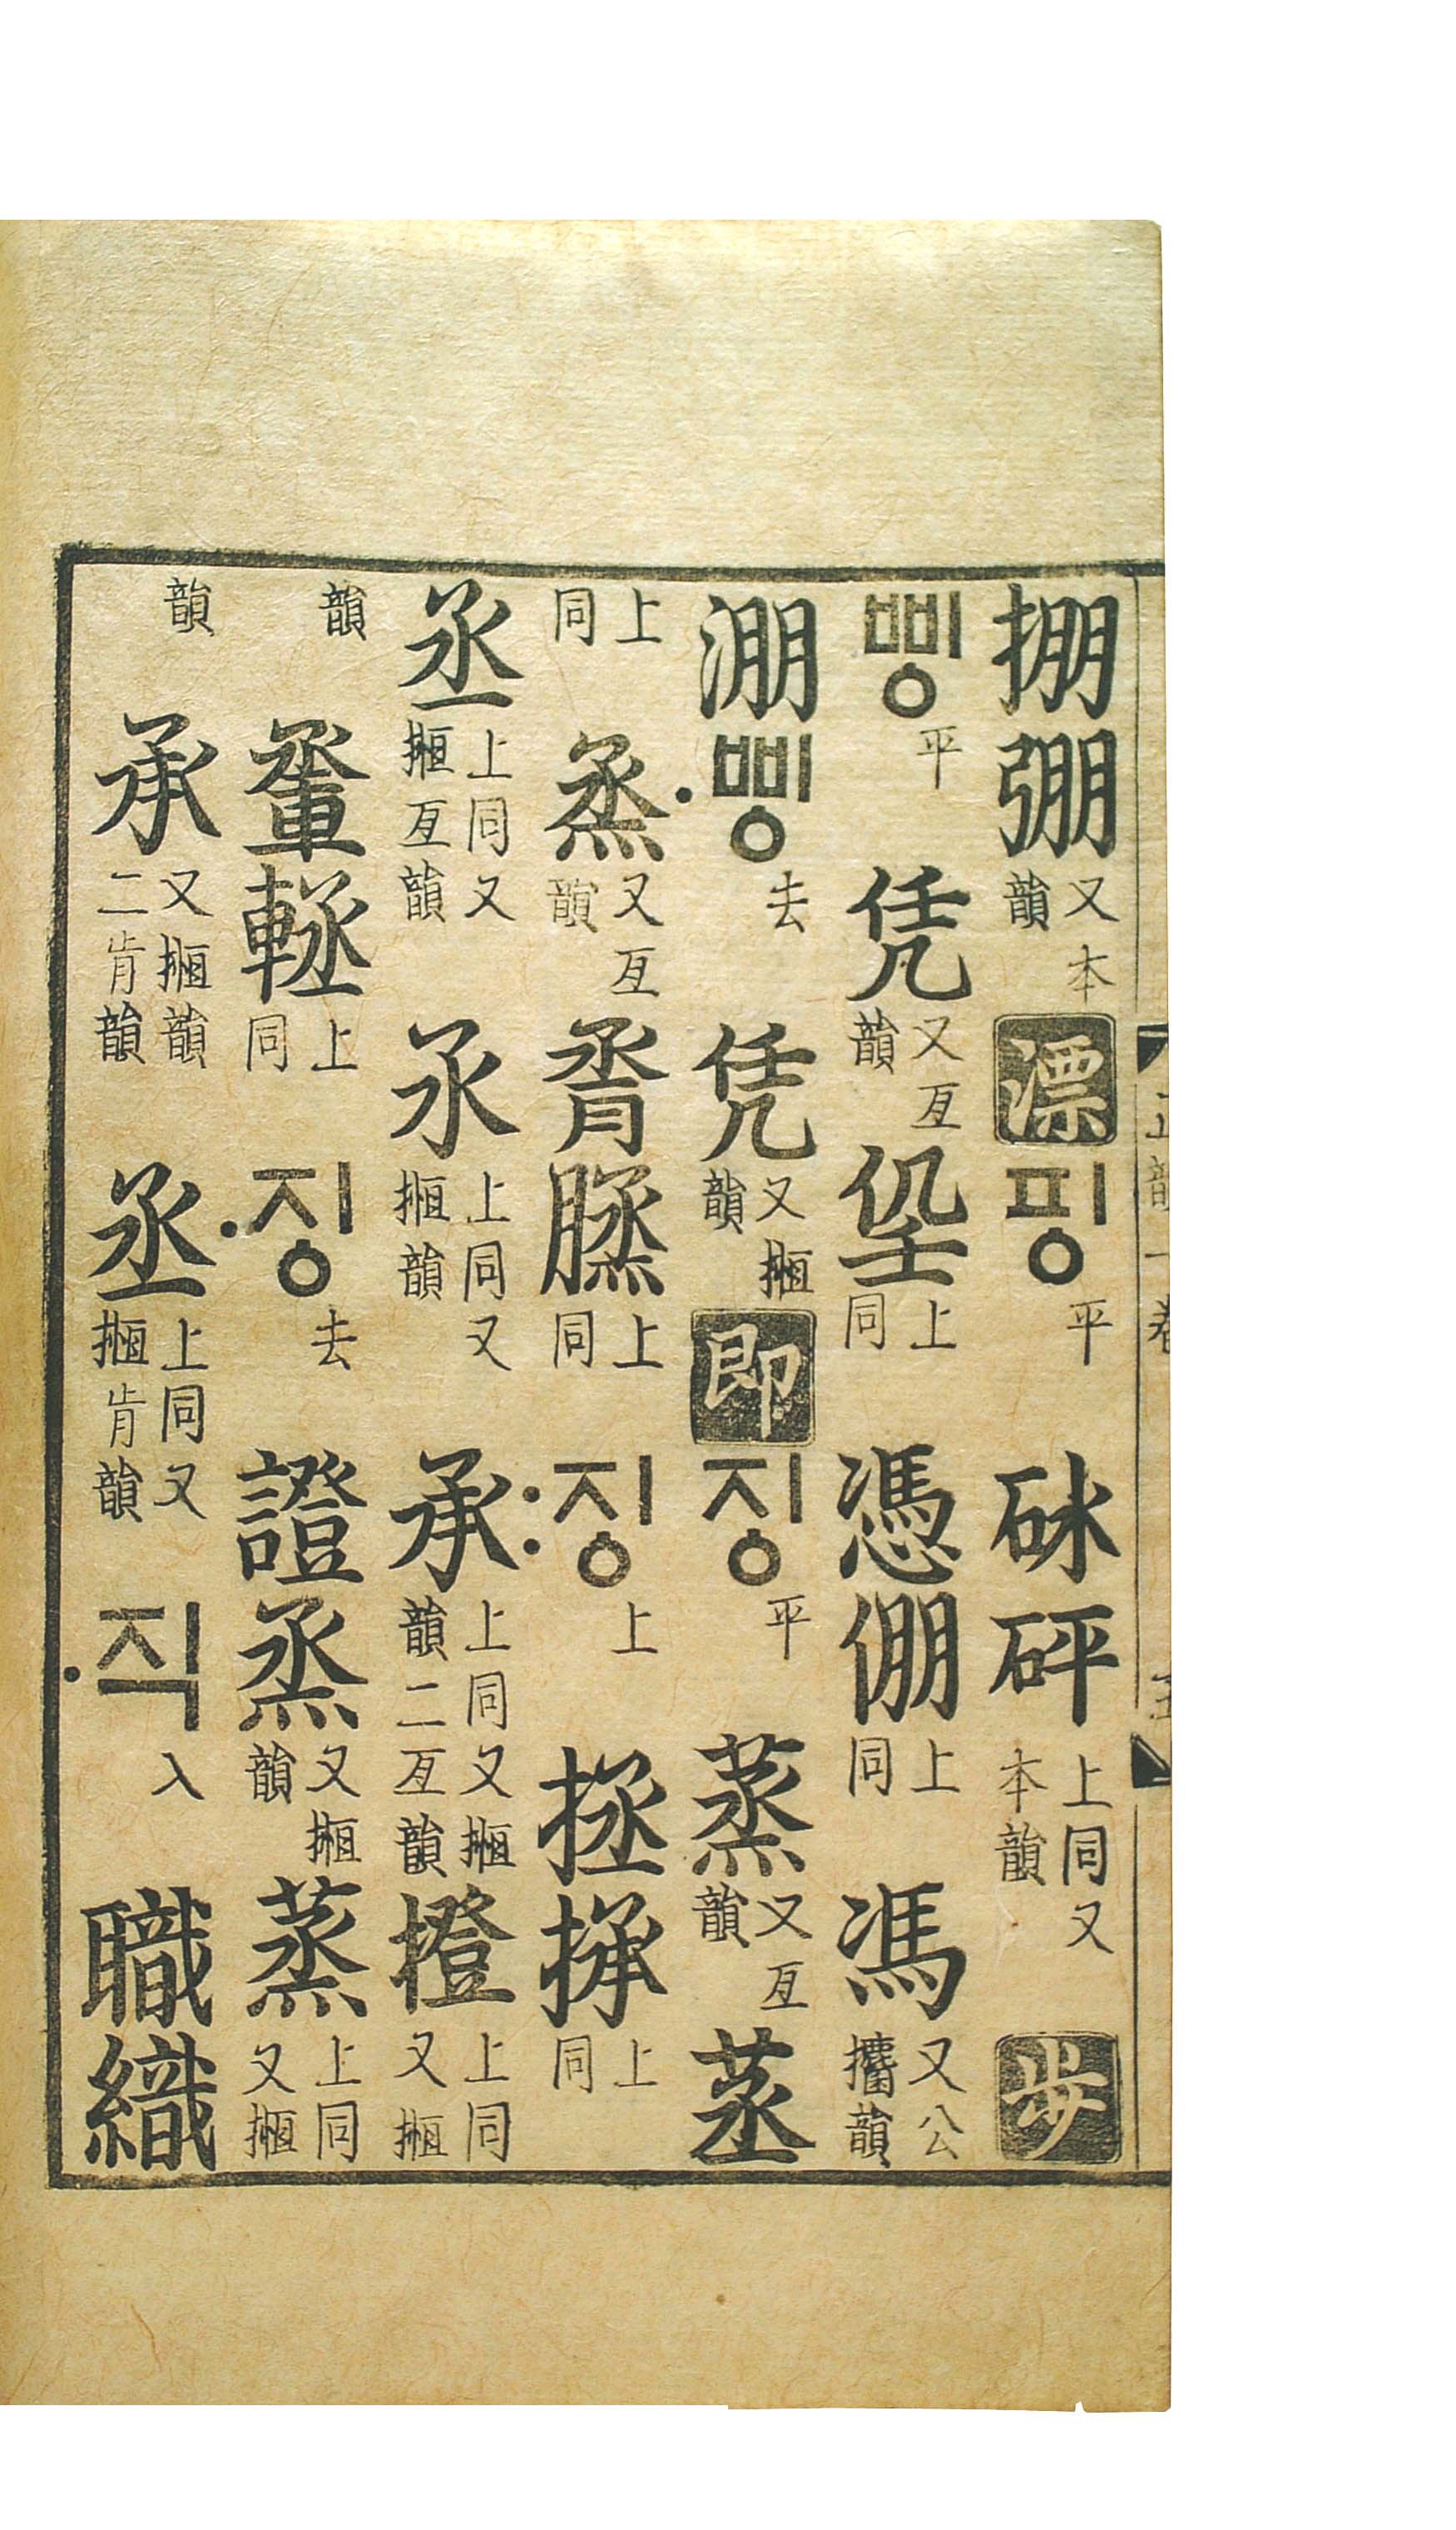 掤弸又本韻漂핑平砅砰上同又本韻步
삥平凭又亙韻上同憑倗上同馮又公韻
淜〮삥去凭又揯韻即징平蒸又亙韻䒱
上同烝又亙韻脀上同〯징上拯抍上同
丞上同又揯亙韻氶上同又揯韻承上同又揯韻二亙韻撜上同又揯
韻上同〮징去證烝又揯韻蒸上同又揯
韻承又揯韻二肯韻丞上同又揯肯韻〮직入職織